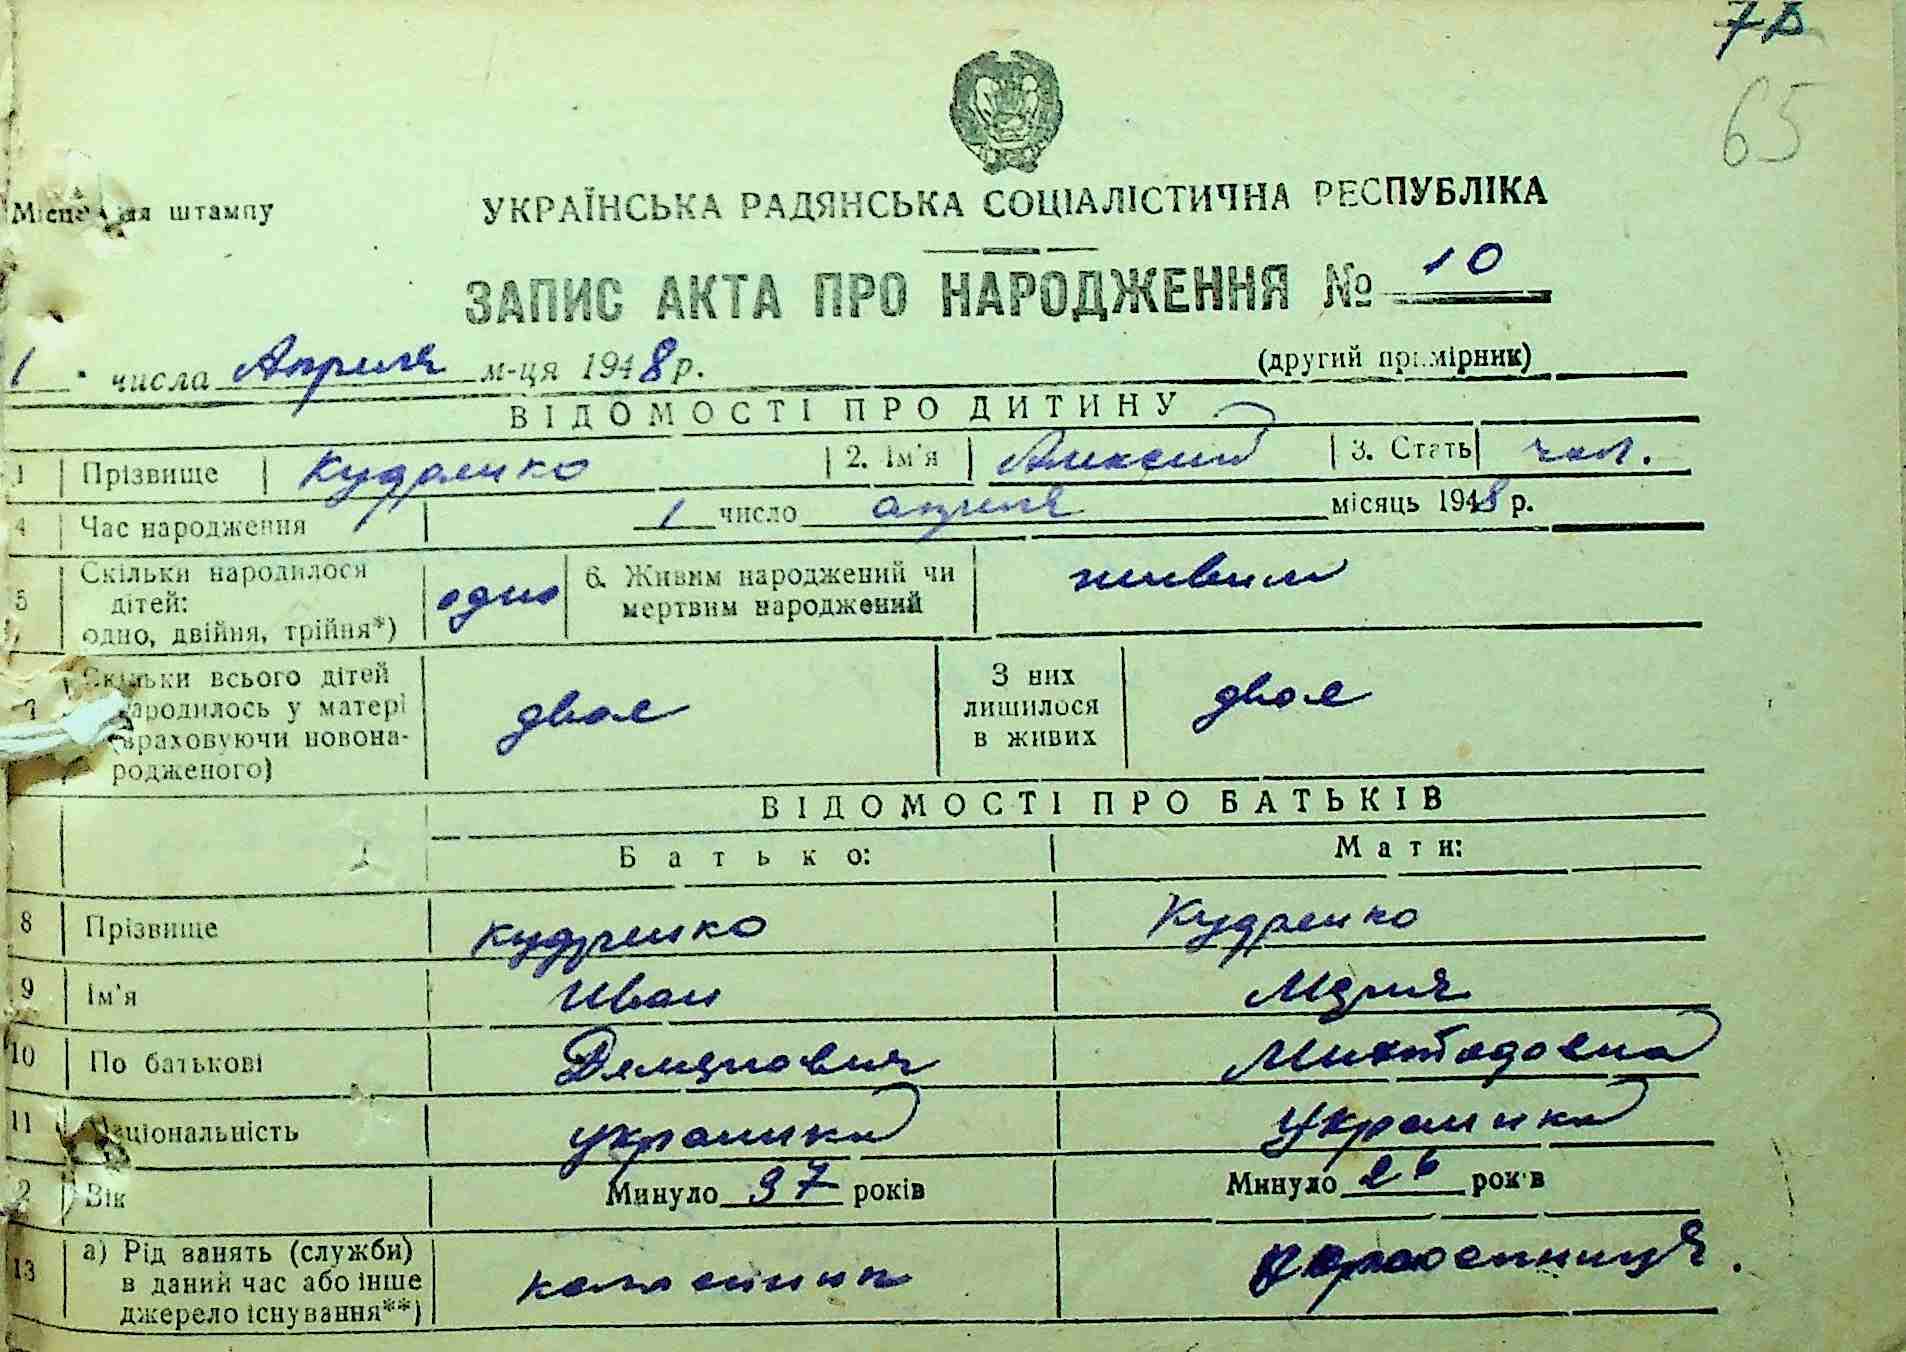 65
Місце для штампу
УКРАЇНСЬКА РАДЯНСЬКА СОЦІАЛІСТИЧНА РЕСПУБЛІКА
ЗАПИС АКТА ПРО НАРОДЖЕННЯ № 10
1 числа Апреля м-ця 1948 р. (другий примірник)
ВІДОМОСТІ ПРО ДИТИНУ
1 Прізвище Кудренко 2. Ім'я Алексей 3. Стать чол.
4 Час народження 1 число апреля місяць 1948 р.
5 Скільки народилося дітей: одно, двійня, трійня*) одно 6. Живим народжений чи мертвим народжений живим
7 Скільки всього дітей народилось у матері (враховуючи новонародженого) двое З них лишилося в живих двое
ВІДОМОСТІ ПРО БАТЬКІВ
Батько: Мати:
8 Прізвище Кудренко Кудренко
9 Ім'я Иван Мария
10 По батькові Демянович
11 Національність украинка украинка
12 Вік Минуло 37 років Минуло 26 років
13 а) Рід занять (служби)
в даний час або інше
джерело існування**)